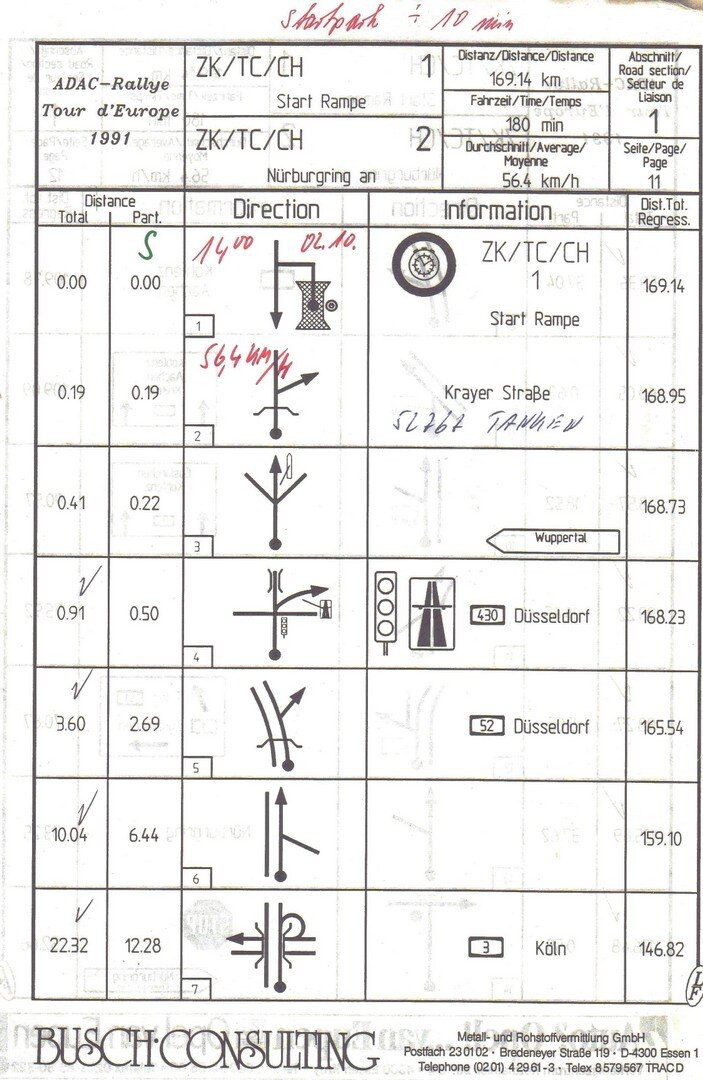 Startpark ÷ 10 min
ADAC-Rallye
Tour d'Europe
1991
ZK/TC/CH 1
Start Rampe
ZK/TC/CH 2
Nürburgring an
Distanz/Distance/Distance
169.14 km
Fahrzeit/Time/Temps
180 min
Durchschnitt/Average/
Moyenne
56.4 km/h
Abschnitt/
Road section/
Secteur de
Liaison
1
Seite/Page/
Page
11
Distance
Total Part.
Direction
Information
Dist.Tot.
Regress.
S
14 00 02.10.
0.00 0.00
1
ZK/TC/CH
1
Start Rampe
169.14
56,4 KM/H
0.19 0.19
2
Krayer Straße
52767 TANKEN
168.95
0.41 0.22
3
Wuppertal
168.73
0.91 0.50
4
430 Düsseldorf
168.23
3.60 2.69
5
52 Düsseldorf
165.54
10.04 6.44
6
159.10
22.32 12.28
7
3 Köln
146.82
BUSCH·CONSULTING
Metall- und Rohstoffvermittlung GmbH
Postfach 230102 · Bredeneyer Straße 119 · D-4300 Essen 1
Telephone (0201) 42961-3 · Telex 8579567 TRAC D